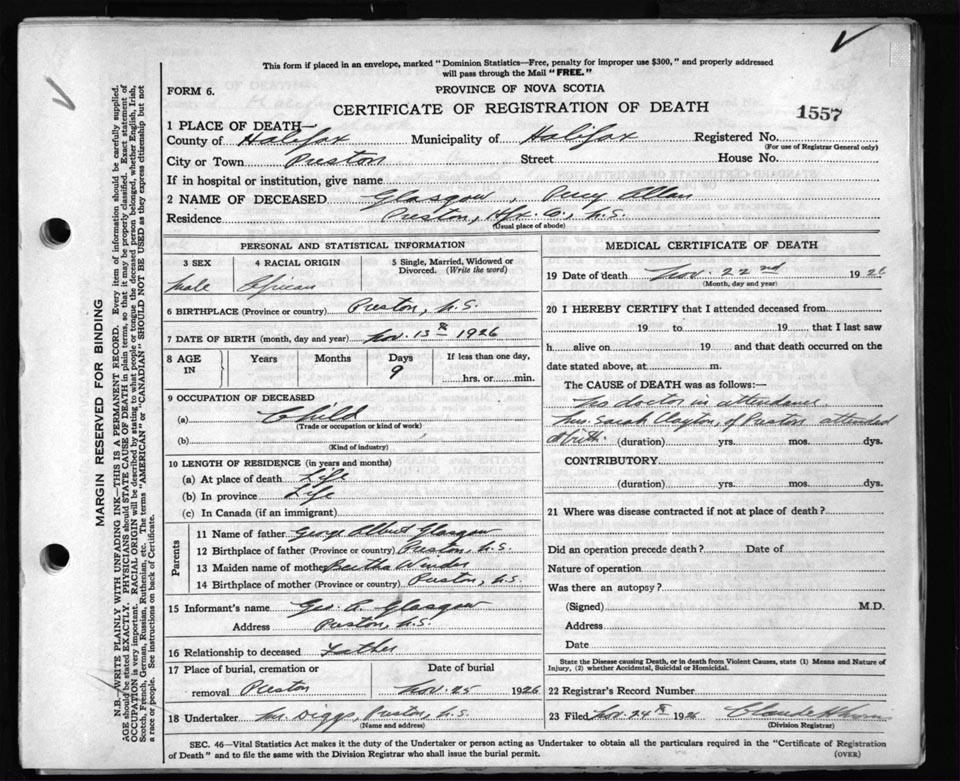 This form if placed in an envelope, marked "Dominion Statistics—Free, penalty for improper use $300," and properly addressed
will pass through the Mail "FREE."
FORM 6.
PROVINCE OF NOVA SCOTIA
CERTIFICATE OF REGISTRATION OF DEATH
1557
1 PLACE OF DEATH—
County of Halifax Municipality of Halifax Registered No.
(For use of Registrar General only)
City or Town Preston Street House No.
If in hospital or institution, give name
2 NAME OF DECEASED Glasgow, Percy Allan
Residence Preston, Hfx. Co., N.S.
(Usual place of abode)
PERSONAL AND STATISTICAL INFORMATION
3 SEX
4 RACIAL ORIGIN
5 Single, Married, Widowed or
Divorced. (Write the word)
Male African
6 BIRTHPLACE (Province or country) Preston, N.S.
7 DATE OF BIRTH (month, day and year) Nov. 13th 1926
8 AGE IN
Years Months Days
9
If less than one day,
hrs. or min.
9 OCCUPATION OF DECEASED
(a) Child
(Trade or occupation or kind of work)
(b)
(Kind of industry)
10 LENGTH OF RESIDENCE (in years and months)
(a) At place of death Life
(b) In province Life
(c) In Canada (if an immigrant)
Parents
11 Name of father George Albert Glasgow
12 Birthplace of father (Province or country) Preston, N.S.
13 Maiden name of mother Bertha Winder
14 Birthplace of mother (Province or country) Preston, N.S.
15 Informant's name Geo. A. Glasgow
Address Preston, N.S.
16 Relationship to deceased Father
17 Place of burial, cremation or
removal Preston
Date of burial
Nov. 25 1926
18 Undertaker Mr Diggs, Preston, N.S.
(Name and address)
MEDICAL CERTIFICATE OF DEATH
19 Date of death Nov. 22nd 1926
(Month, day and year)
20 I HEREBY CERTIFY that I attended deceased from
19 to 19 , that I last saw
h alive on 19 and that death occurred on the
date stated above, at m.
The CAUSE of DEATH was as follows:—
No doctor in attendance.
Mrs. Sarah Clayton, of Preston attended
at birth. (duration) yrs. mos. dys.
CONTRIBUTORY
(duration) yrs. mos. dys.
21 Where was disease contracted if not at place of death?
Did an operation precede death? Date of
Nature of operation
Was there an autopsy?
(Signed) M.D.
Address
Date
State the Disease causing Death, or in death from Violent Causes, state (1) Means and Nature of
Injury, (2) whether Accidental, Suicidal or Homicidal.
22 Registrar's Record Number
23 Filed Nov. 24th 1926 Claude
(Division Registrar)
SEC. 46—Vital Statistics Act makes it the duty of the Undertaker or person acting as Undertaker to obtain all the particulars required in the "Certificate of Registration
of Death" and to file the same with the Division Registrar who shall issue the burial permit.
(OVER)
MARGIN RESERVED FOR BINDING
N.B.—WRITE PLAINLY WITH UNFADING INK—THIS IS A PERMANENT RECORD. Every item of information should be carefully supplied.
AGE should be stated EXACTLY. PHYSICIANS should STATE CAUSE OF DEATH in plain terms, so that it may be properly classified. Exact statement of
OCCUPATION is very important. RACIAL ORIGIN will be described by stating to what people or tongue the deceased person belonged, whether English, Irish,
Scotch, French, German, Russian, Ruthenian, etc. The terms "AMERICAN" or "CANADIAN" SHOULD NOT BE USED as they express citizenship but not
a race or people. See instructions on back of Certificate.